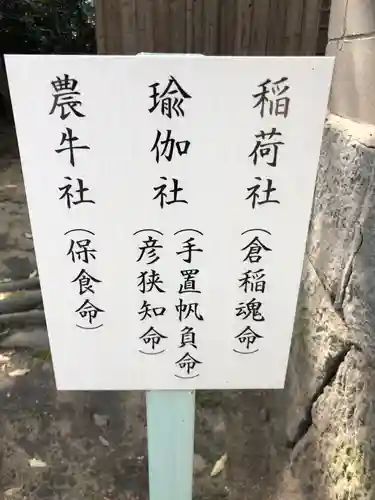 稲荷社（倉稲魂命）
瑜伽社（手置帆負命）
（彦狭知命）
農牛社（保食命）